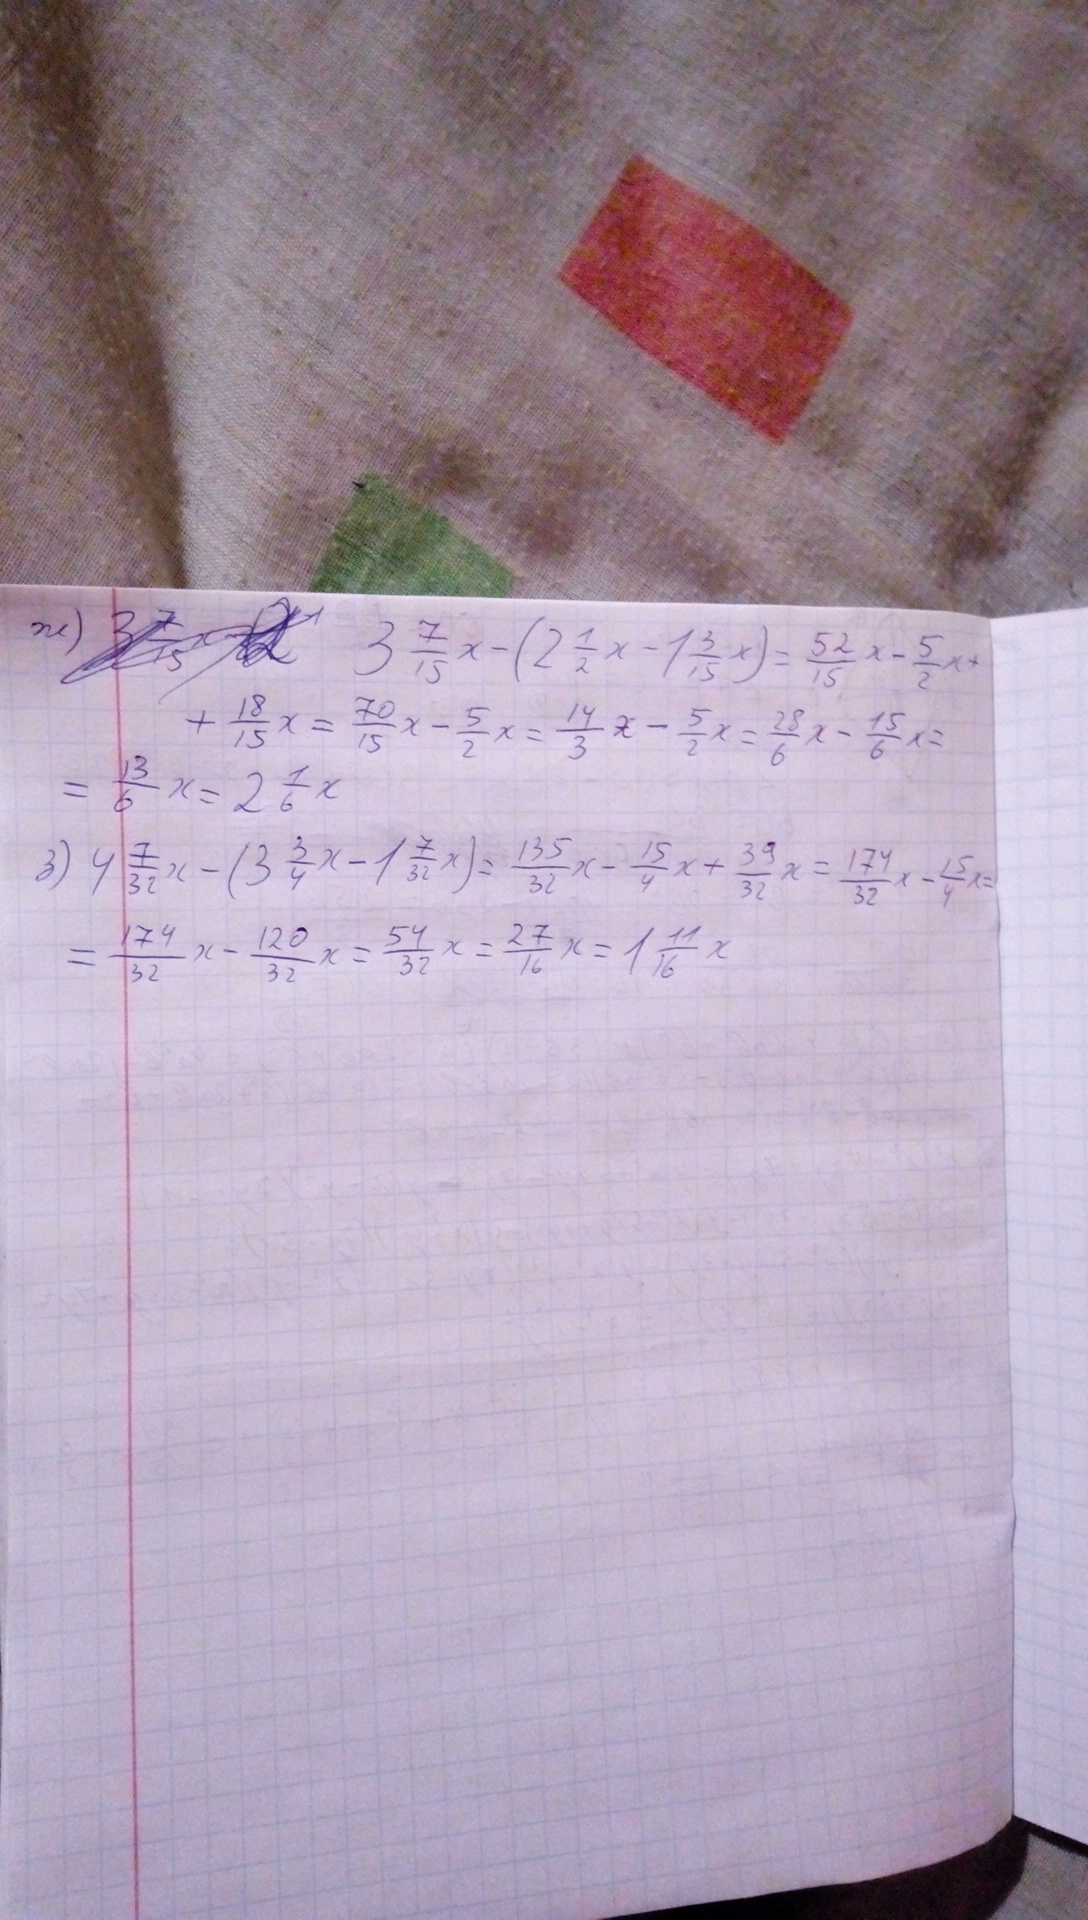 ж) 3 7/15 x - (2 1/2 x - 1 3/15 x) = 52/15 x - 5/2 x +
+ 18/15 x = 70/15 x - 5/2 x = 14/3 x - 5/2 x = 28/6 x - 15/6 x =
= 13/6 x = 2 1/6 x
з) 4 7/32 x - (3 3/4 x - 1 7/32 x) = 135/32 x - 15/4 x + 39/32 x = 174/32 x - 15/4 x =
= 174/32 x - 120/32 x = 54/32 x = 27/16 x = 1 11/16 x